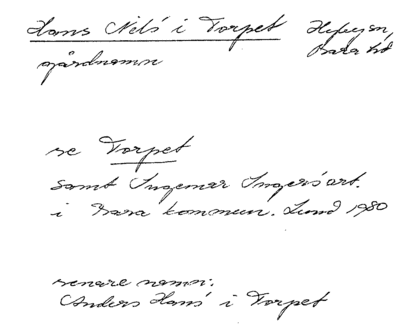 Hans Nels' i Torpet
Hyby sn,
Bara hd
gårdnamn
se Torpet
samt Ingemar Ingers' art.
i Bara kommun. Lund 1980
senare namn:
Anders Hans' i Torpet